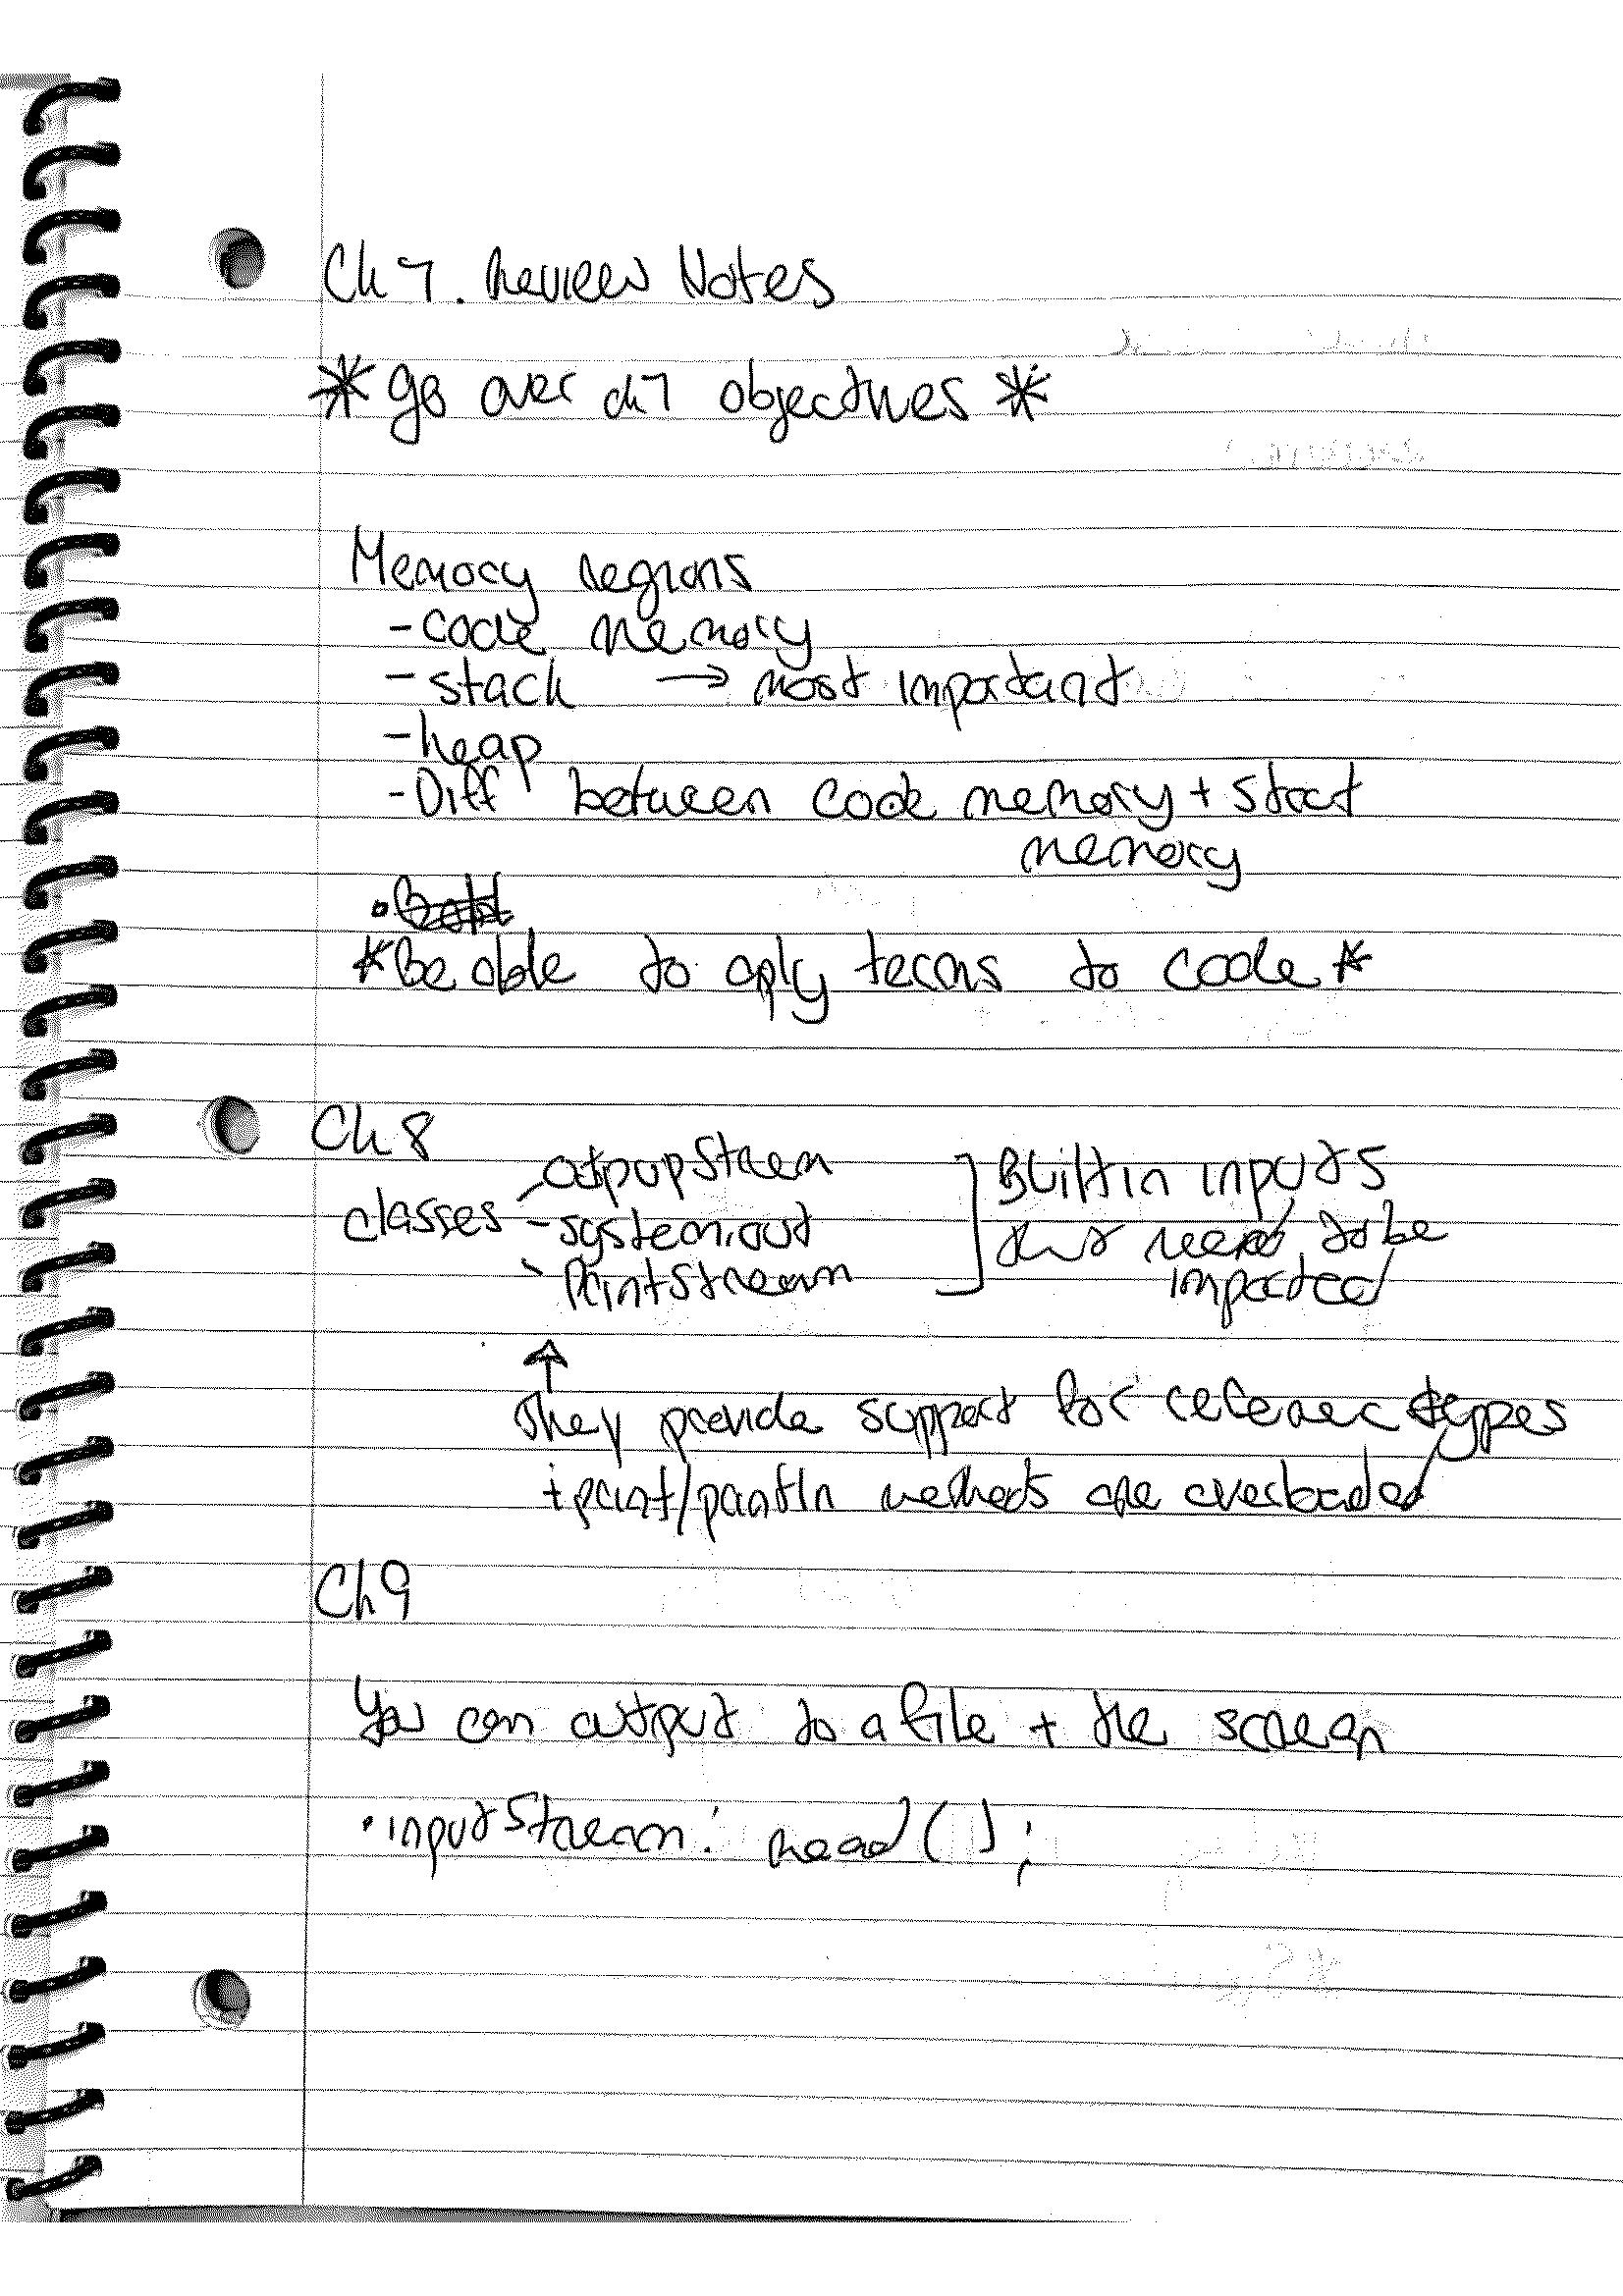 Ch 7. Review Notes
*go over ch7 objectives*
Memory regions
-code memory
-stack → most important
-heap
-Diff between code memory + start
memory
*Be able to aply terms to code*
Ch 8
classes
-OutpupStream
-system.out
-PrintStream
Built in inputs
that need to be
imported
↑
They provide support for reference types
+ print/println methods are overloaded
Ch9
You can output to a file + the screen
•inputStream: read();